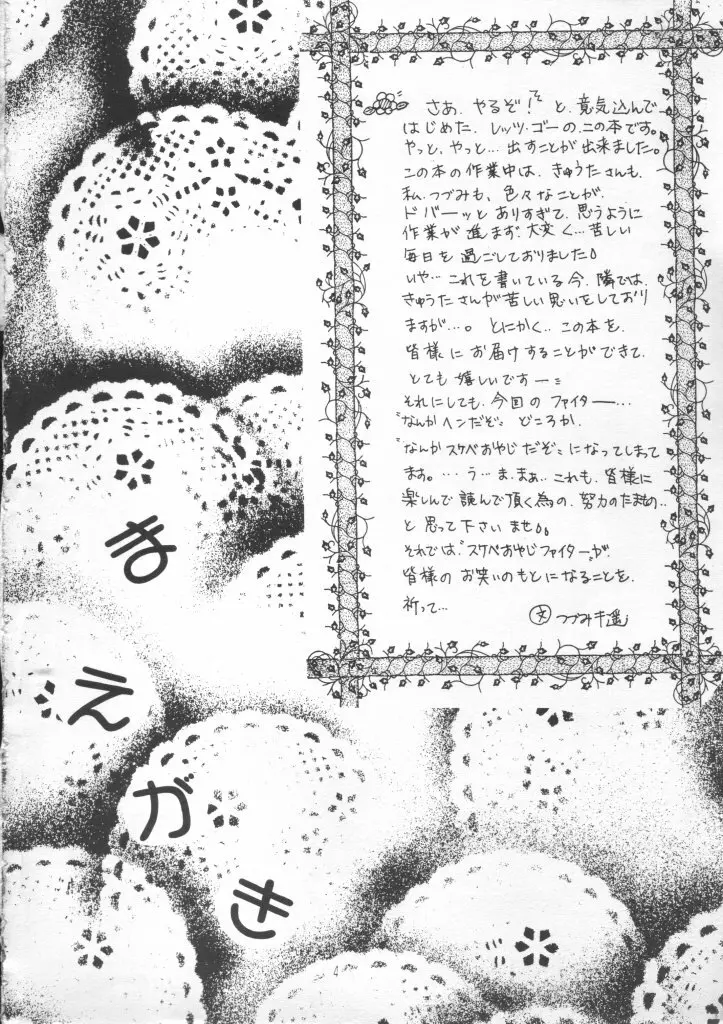 まえがき
さあ、やるぞ!と、意気込んで
はじめた、レッツ・ゴーの、この本です。
やっと、やっと…出すことが出来ました。
この本の作業中は、きゅうたさんも、
私、つづみも、色々なことが、
ドバーッとありすぎて、思うように
作業が進まず、大変く…苦しい
毎日を過ごしておりました。
いや…これを書いている今、隣では、
きゅうたさんが苦しい思いをしており
ますが…。とにかく、この本を、
皆様にお届けすることができて、
とても嬉しいですー
それにしても、今回のファイター…
"なんかヘンだぞ〟どころか、
"なんかスケベおやじだぞ〟になってしまって
ます。…う…ま、まぁ、これも、皆様に
楽しんで読んで頂く為の、努力のたまもの..
と思って下さいませ。
それでは"スケベおやじファイター"が、
皆様のお笑いのもとになることを、
祈って…
文 つづみ
4